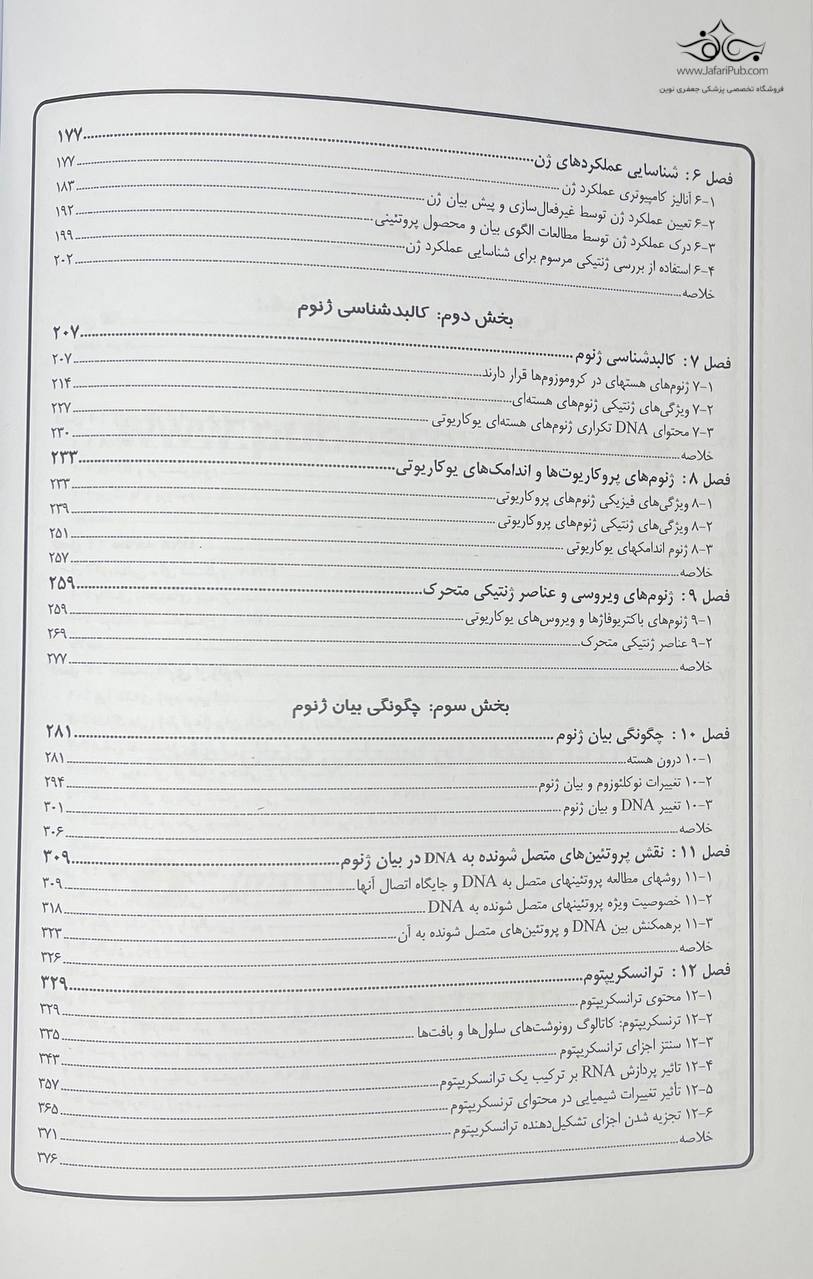 www.JafariPub.com
فروشگاه تخصصی پزشکی جعفری نوین
فصل ۶: شناسایی عملکردهای ژن ۱۷۷
۶-۱ آنالیز کامپیوتری عملکرد ژن ۱۷۷
۶-۲ تعیین عملکرد ژن توسط غیرفعال‌سازی و پیش بیان ژن ۱۸۳
۶-۳ درک عملکرد ژن توسط مطالعات الگوی بیان و محصول پروتئینی ۱۹۲
۶-۴ استفاده از بررسی ژنتیکی مرسوم برای شناسایی عملکرد ژن ۱۹۹
خلاصه ۲۰۲
بخش دوم: کالبدشناسی ژنوم
فصل ۷: کالبدشناسی ژنوم ۲۰۷
۷-۱ ژنوم‌های هستهای در کروموزوم‌ها قرار دارند ۲۰۷
۷-۲ ویژگی‌های ژنتیکی ژنوم‌های هسته‌ای ۲۱۴
۷-۳ محتوای DNA تکراری ژنوم‌های هسته‌ای یوکاریوتی ۲۲۷
خلاصه ۲۳۰
فصل ۸: ژنوم‌های پروکاریوت‌ها و اندامک‌های یوکاریوتی ۲۳۳
۸-۱ ویژگی‌های فیزیکی ژنوم‌های پروکاریوتی ۲۳۳
۸-۲ ویژگی‌های ژنتیکی ژنوم‌های پروکاریوتی ۲۳۹
۸-۳ ژنوم اندامکهای یوکاریوتی ۲۵۱
خلاصه ۲۵۷
فصل ۹: ژنوم‌های ویروسی و عناصر ژنتیکی متحرک ۲۵۹
۹-۱ ژنوم‌های باکتریوفاژها و ویروس‌های یوکاریوتی ۲۵۹
۹-۲ عناصر ژنتیکی متحرک ۲۶۹
خلاصه ۲۷۷
بخش سوم: چگونگی بیان ژنوم
فصل ۱۰: چگونگی بیان ژنوم ۲۸۱
۱۰-۱ درون هسته ۲۸۱
۱۰-۲ تغییرات نوکلئوزوم و بیان ژنوم ۲۹۴
۱۰-۳ تغییر DNA و بیان ژنوم ۳۰۱
خلاصه ۳۰۶
فصل ۱۱: نقش پروتئین‌های متصل شونده به DNA در بیان ژنوم ۳۰۹
۱۱-۱ روشهای مطالعه پروتئینهای متصل به DNA و جایگاه اتصال آنها ۳۰۹
۱۱-۲ خصوصیت ویژه پروتئینهای متصل شونده به DNA ۳۱۸
۱۱-۳ برهمکنش بین DNA و پروتئین‌های متصل شونده به آن ۳۲۳
خلاصه ۳۲۶
فصل ۱۲: ترانسکریپتوم ۳۲۹
۱۲-۱ محتوی ترانسکریپتوم ۳۲۹
۱۲-۲ ترنسکریپتوم: کاتالوگ رونوشت‌های سلول‌ها و بافت‌ها ۳۳۵
۱۲-۳ سنتز اجزای ترانسکریپتوم ۳۴۳
۱۲-۴ تاثیر پردازش RNA بر ترکیب یک ترانسکریپتوم ۳۵۷
۱۲-۵ تأثیر تغییرات شیمیایی در محتوای ترنسکریپتوم ۳۶۵
۱۲-۶ تجزیه شدن اجزای تشکیل‌دهنده ترانسکریپتوم ۳۷۱
خلاصه ۳۷۶